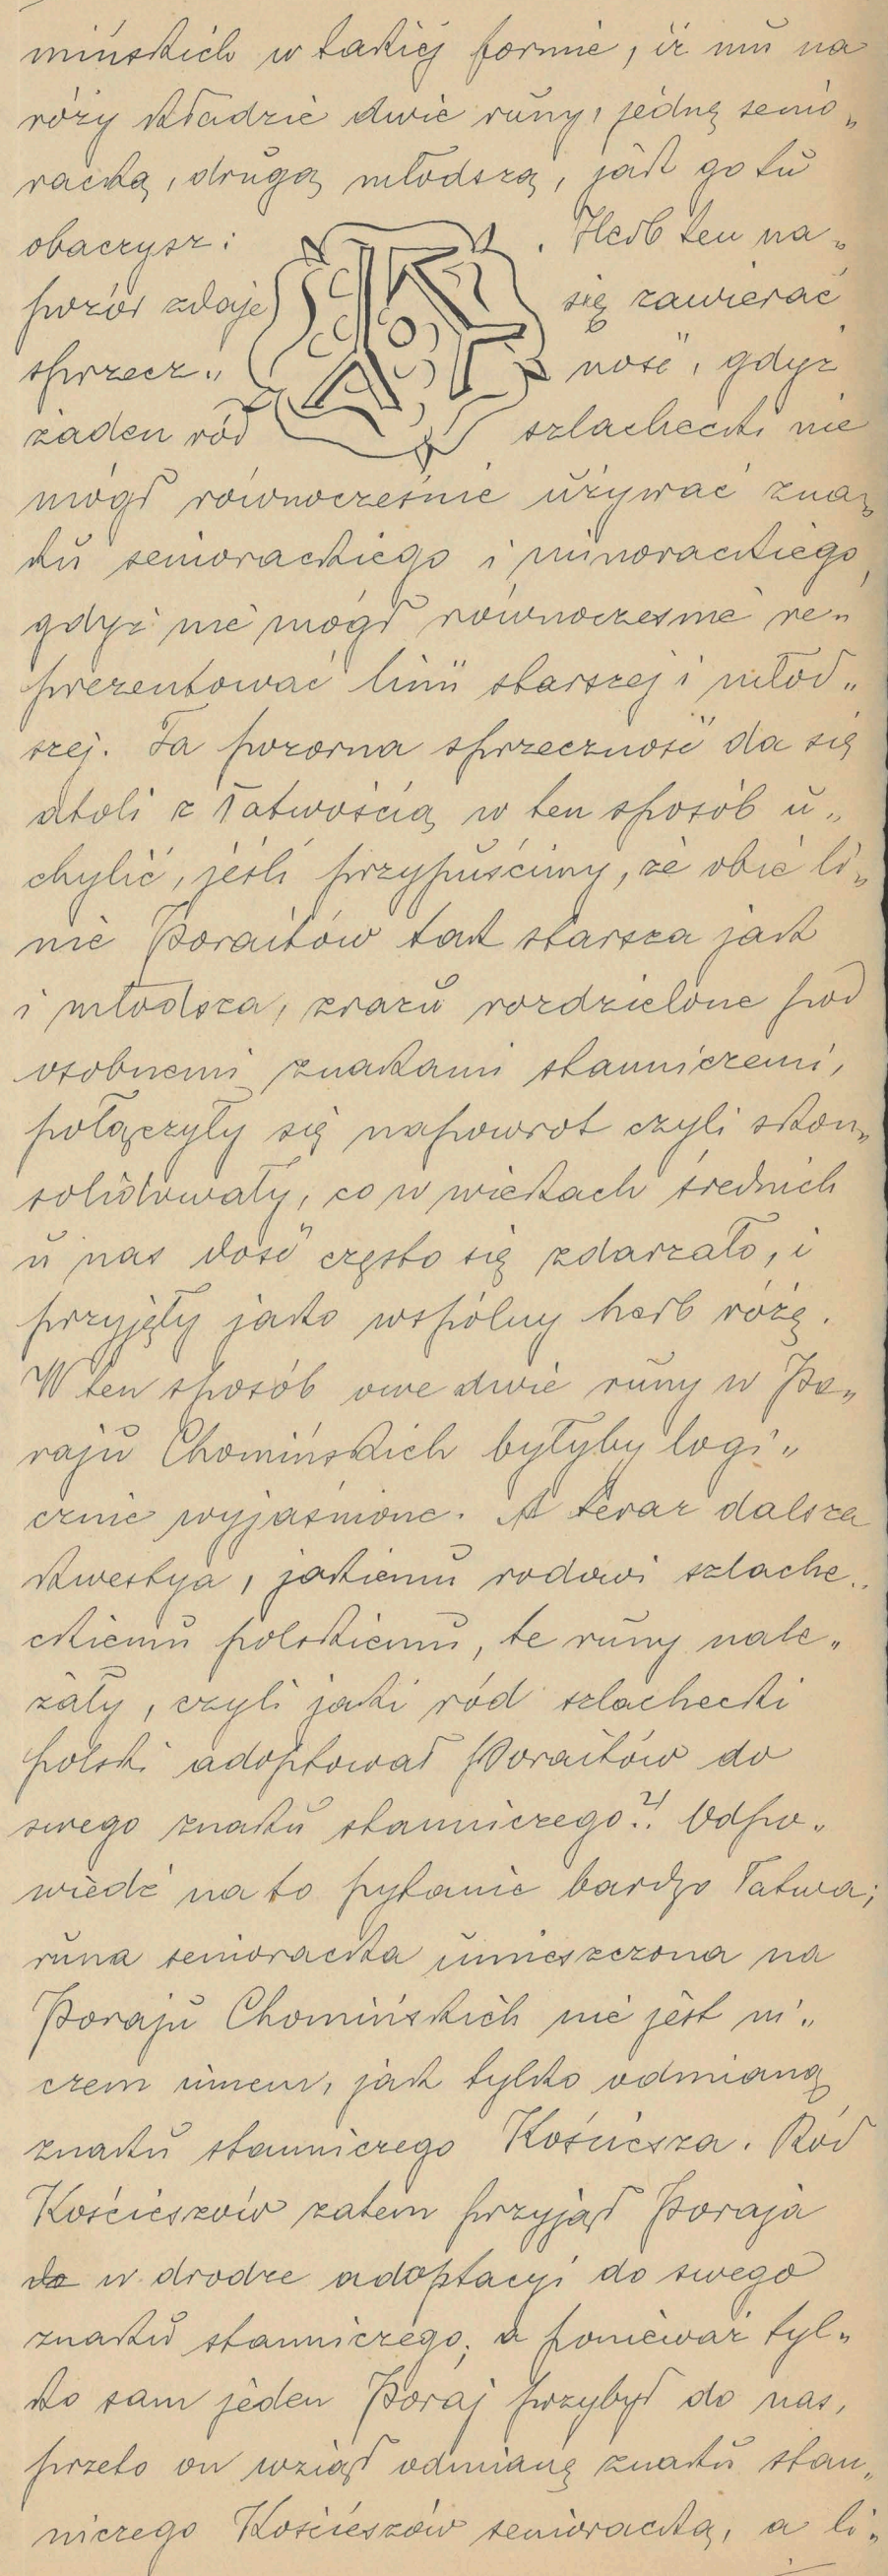 mińskich w takiéj formie, iż mu na
róży kładzie dwie runy, jedną senio„
racką, drugą młodszą, jak go tu
obaczysz: . Herb ten na„
pozór zdaje się zawierać
sprzecz„ ność, gdyż
żaden ród szlachecki nie
mógł równocześnie używać zna„
ku seniorackiego i minorackiego,
gdyż nie mógł równocześnie re„
prezentować linii starszej i młod„
szej. Ta pozorna sprzeczność da się
atoli z łatwością w ten sposób u„
chylić, jeśli przypuścimy, że obie li„
nie Poraitów tak starsza jak
i młodsza, zrazu rozdzielone pod
osobnemi znakami stanniczemi,
połączyły się napowrot czyli skon„
solidowały, co w wiekach średnich
u nas dość często się zdarzało, i
przyjęły jako wspólny herb różę.
W ten sposób owe dwie runy w Po„
raju Chomińskich byłyby logi„
cznie wyjaśnione. A teraz dalsza
kwestya, jakiemu rodowi szlache„
ckiemu polskiemu, te runy nale„
żały, czyli jaki ród szlachecki
polski adoptował Poraitów do
swego znaku stanniczego?! Odpo„
wiedź na to pytanie bardzo łatwa;
runa senioracka umieszczona na
Poraju Chomińskich nie jest ni„
czem innem, jak tylko odmianą
znaku stanniczego Kościesza. Ród
Kościeszów zatem przyjął Poraja
do w drodze adoptacyi do swego
znaku stanniczego; a ponieważ tyl„
ko sam jeden Poraj przybył do nas,
przeto on wziął odmianę znaku stan„
niczego Kościeszów senioracką, a li„